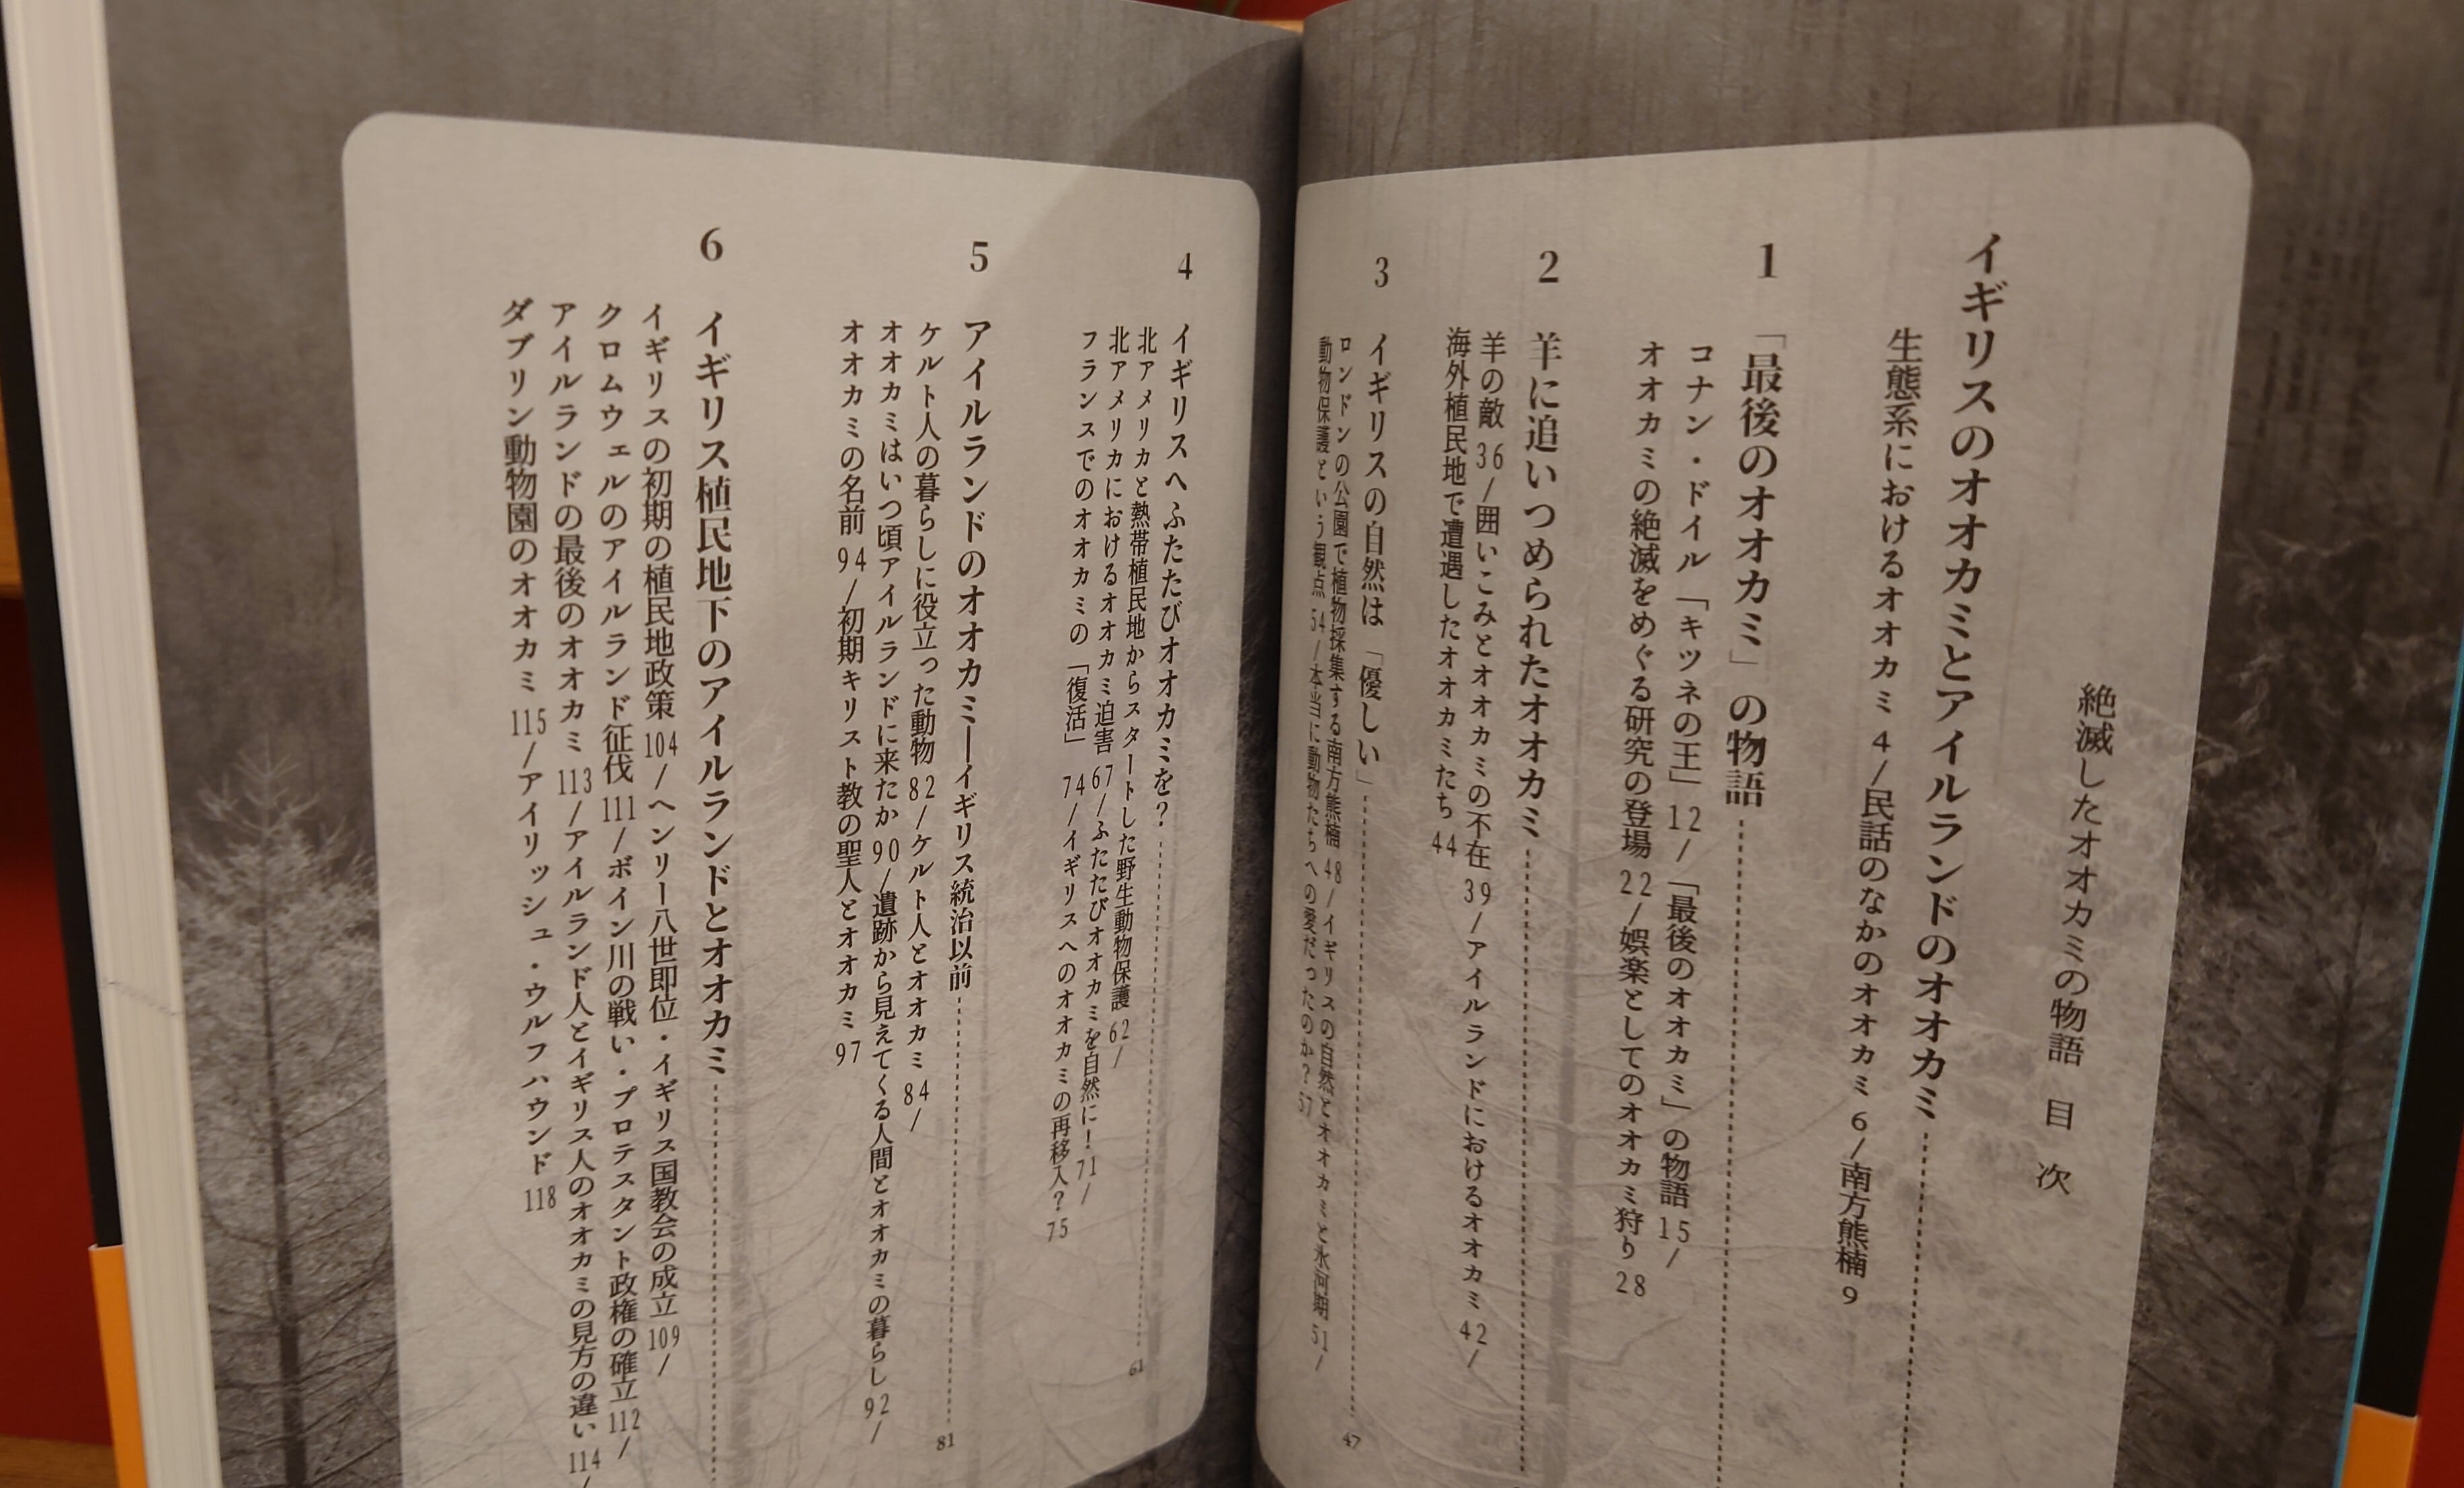 絶滅したオオカミの物語 目次
イギリスのオオカミとアイルランドのオオカミ
生態系におけるオオカミ 4/民話のなかのオオカミ 6/南方熊楠 9
1 「最後のオオカミ」の物語
コナン・ドイル「キツネの王」12/「最後のオオカミ」の物語 15/
オオカミの絶滅をめぐる研究の登場 22/娯楽としてのオオカミ狩り 28
2 羊に追いつめられたオオカミ
羊の敵 36/囲いこみとオオカミの不在 39/アイルランドにおけるオオカミ 42/
海外植民地で遭遇したオオカミたち 44
3 イギリスの自然は「優しい」 47
ロンドンの公園で植物採集する南方熊楠 48/イギリスの自然とオオカミと氷河期 51/
動物保護という観点 54/本当に動物たちへの愛だったのか? 57
4 イギリスへふたたびオオカミを? 61
北アメリカと熱帯植民地からスタートした野生動物保護 62/
北アメリカにおけるオオカミ迫害 67/ふたたびオオカミを自然に! 71/
フランスでのオオカミの「復活」 74/イギリスへのオオカミの再移入? 75
5 アイルランドのオオカミ―イギリス統治以前 81
ケルト人の暮らしに役立った動物 82/ケルト人とオオカミ 84/
オオカミはいつ頃アイルランドに来たか 90/遺跡から見えてくる人間とオオカミの暮らし 92/
オオカミの名前 94/初期キリスト教の聖人とオオカミ 97
6 イギリス植民地下のアイルランドとオオカミ
イギリスの初期の植民地政策 104/ヘンリー八世即位・イギリス国教会の成立 109/
クロムウェルのアイルランド征伐 111/ボイン川の戦い・プロテスタント政権の確立 112/
アイルランドの最後のオオカミ 113/アイルランド人とイギリス人のオオカミの見方の違い 114/
ダブリン動物園のオオカミ 115/アイリッシュ・ウルフハウンド 118